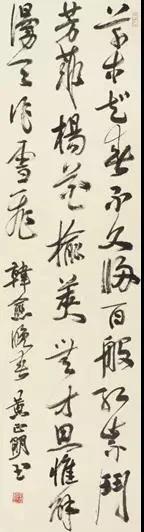 草木知春不久歸百般紅紫鬥
芳菲楊花榆莢無才思惟解
漫天作雪飛 韓愈晚春 黃正明書